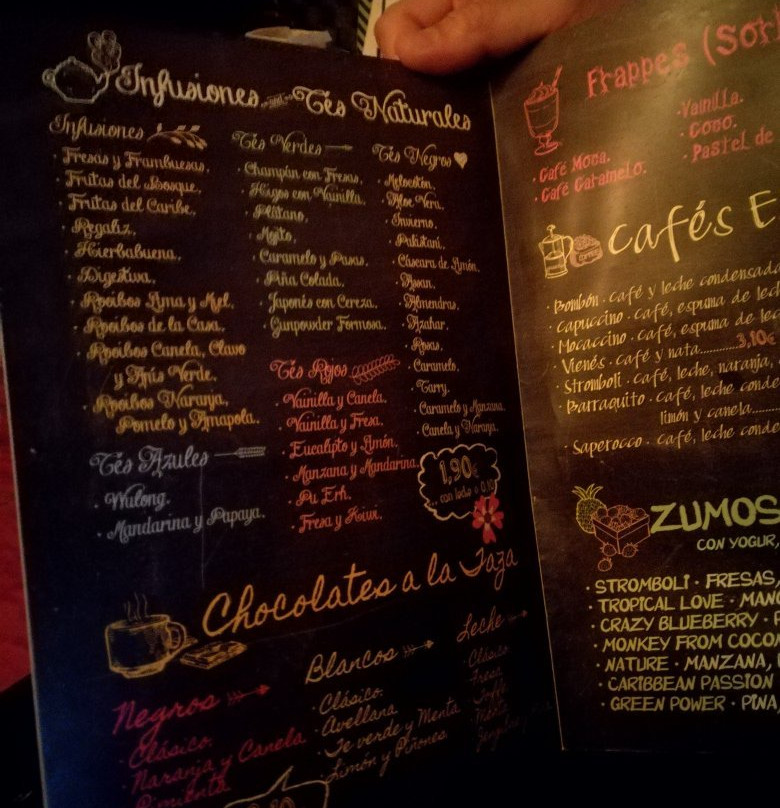 Infusiones Tés Naturales
Infusiones
· Fresas y Frambuesas.
· Frutas del Bosque.
· Frutas del Caribe.
· Regaliz.
· Hierbabuena.
· Digestiva.
· Rooibos Lima y Miel.
· Rooibos de la Casa.
· Rooibos Canela, Clavo
y Anís Verde.
· Rooibos Naranja,
Pomelo y Amapola.
Tés Azules
· Wulong.
· Mandarina y Papaya.
Tés Verdes
· Champán con Fresas.
· Higos con Vainilla.
· Plátano.
· Mojito.
· Caramelo y Pasas.
· Piña Colada.
· Japonés con Cereza.
· Gunpowder Formosa.
Tés Rojos
· Vainilla y Canela.
· Vainilla y Fresa.
· Eucalipto y Limón.
· Manzana y Mandarina.
· Pu Erh.
· Fresa y Kiwi.
Tés Negros
· Melocotón.
· Aloe Vera.
· Invierno.
· Pakistaní.
· Cáscara de Limón.
· Assan.
· Almendras.
· Azahar.
· Rosas.
· Caramelo.
· Earry.
· Caramelo y Manzana.
· Canela y Naranja.
1,90€
con leche + 0,10
Chocolates a la Taza
Negros
· Clásico.
· Naranja y Canela
· Pimienta
Blancos
· Clásico.
· Avellana
· Te verde y Menta
· Limón y Piñones
Leche
· Clásico
· Fresa
· Toffe
· Menta
Frappes (Sor
· Café Moca.
· Café Caramelo.
· Vainilla.
· Coco.
· Pastel de
Cafés E
· Bombón · café y leche condensada
· Capuccino · café, espuma de lech
· Mocaccino · café, espuma de lec
· Vienés · café y nata.........3,10€
· Stromboli · café, leche, naranja,
· Barraquito · café, leche conde
limón y canela.......
· Saperocco · café, leche conde
ZUMOS
CON YOGUR,
· STROMBOLI · FRESAS,
· TROPICAL LOVE · MANG
· CRAZY BLUEBERRY · P
· MONKEY FROM COCO
· NATURE · MANZANA,
· CARIBBEAN PASSION
· GREEN POWER · PIÑA,